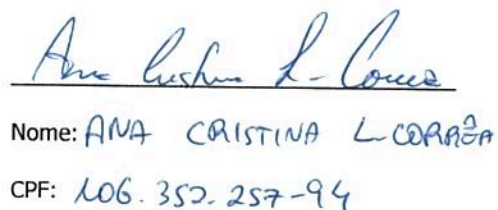 Ana Cristina L. Correa
Nome: ANA CRISTINA L CORRÊA
CPF: 106.352.257-94